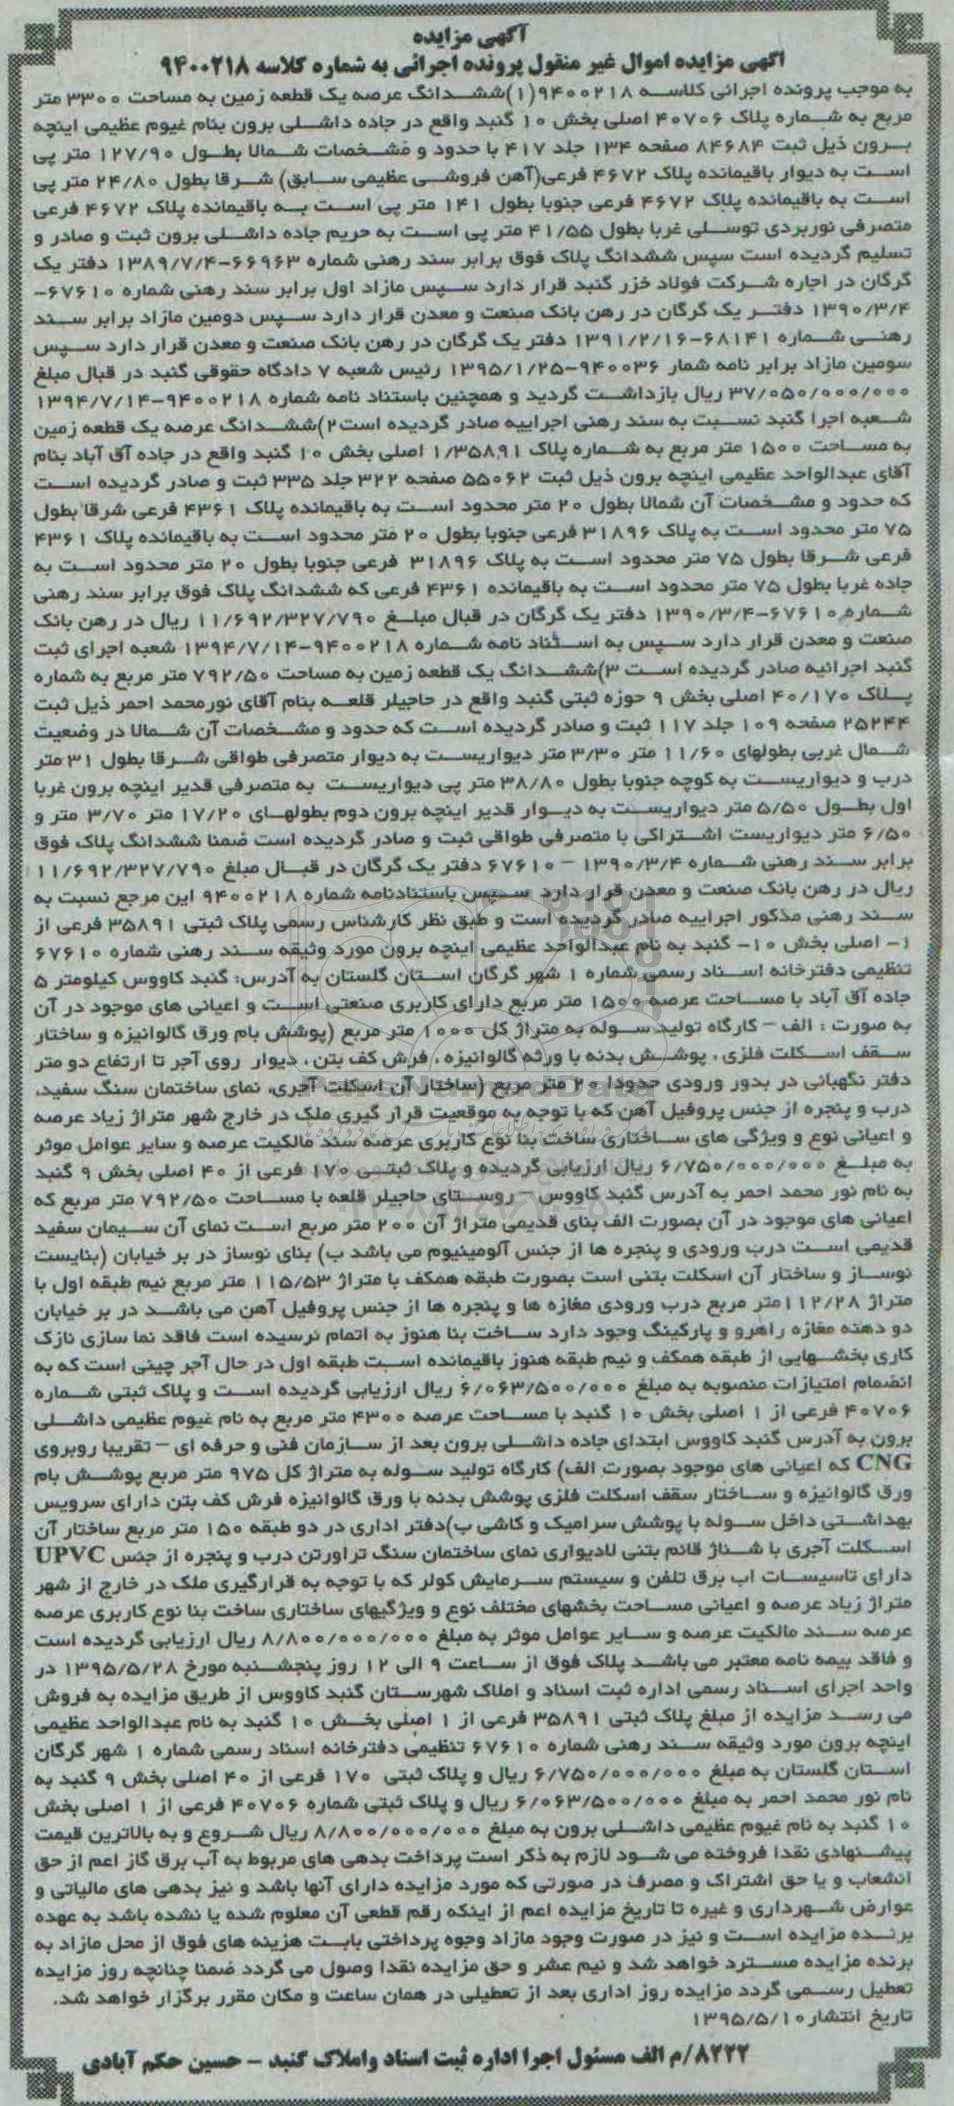 آگهی مزایده
آگهی مزایده اموال غیر منقول پرونده اجرائی به شماره کلاسه ۹۴۰۰۲۱۸
به موجب پرونده اجرائی کلاسه ۹۴۰۰۲۱۸(۱)ششدانگ عرصه یک قطعه زمین به مساحت ۳۳۰۰ متر
مربع به شماره پلاک ۴۰۷۰۶ اصلی بخش ۱۰ گنبد واقع در جاده داشلی برون بنام غیوم عظیمی اینچه
برون ذیل ثبت ۸۴۶۸۴ صفحه ۱۳۴ جلد ۴۱۷ با حدود و مشخصات شمالا بطول ۱۲۷/۹۰ متر پی
است به دیوار باقیمانده پلاک ۴۶۷۲ فرعی(آهن فروشی عظیمی سابق) شرقا بطول ۲۴/۸۰ متر پی
است به باقیمانده پلاک ۴۶۷۲ فرعی جنوبا بطول ۱۴۱ متر پی است به باقیمانده پلاک ۴۶۷۲ فرعی
متصرفی نوربردی توسلی غربا بطول ۴۱/۵۵ متر پی است به حریم جاده داشلی برون ثبت و صادر و
تسلیم گردیده است سپس ششدانگ پلاک فوق برابر سند رهنی شماره ۶۶۹۶۳-۱۳۸۹/۷/۴ دفتر یک
گرگان در اجاره شرکت فولاد خزر گنبد قرار دارد سپس مازاد اول برابر سند رهنی شماره ۶۷۶۱۰-
۱۳۹۰/۳/۴ دفتر یک گرگان در رهن بانک صنعت و معدن قرار دارد سپس دومین مازاد برابر سند
رهنی شماره ۶۸۱۴۱-۱۳۹۱/۲/۱۶ دفتر یک گرگان در رهن بانک صنعت و معدن قرار دارد سپس
سومین مازاد برابر نامه شمار ۹۴۰۰۳۶-۱۳۹۵/۱/۲۵ رئیس شعبه ۷ دادگاه حقوقی گنبد در قبال مبلغ
۳۷/۰۵۰/۰۰۰/۰۰۰ ریال بازداشت گردید و همچنین باستناد نامه شماره ۹۴۰۰۲۱۸-۱۳۹۴/۷/۱۴
شعبه اجرا گنبد نسبت به سند رهنی اجراییه صادر گردیده است۲)ششدانگ عرصه یک قطعه زمین
به مساحت ۱۵۰۰ متر مربع به شماره پلاک ۱/۳۵۸۹۱ اصلی بخش ۱۰ گنبد واقع در جاده آق آباد بنام
آقای عبدالواحد عظیمی اینچه برون ذیل ثبت ۵۵۰۶۲ صفحه ۳۲۲ جلد ۳۳۵ ثبت و صادر گردیده است
که حدود و مشخصات آن شمالا بطول ۲۰ متر محدود است به باقیمانده پلاک ۴۳۶۱ فرعی شرقا بطول
۷۵ متر محدود است به پلاک ۳۱۸۹۶ فرعی جنوبا بطول ۲۰ متر محدود است به باقیمانده پلاک ۴۳۶۱
فرعی شرقا بطول ۷۵ متر محدود است به پلاک ۳۱۸۹۶ فرعی جنوبا بطول ۲۰ متر محدود است به
جاده غربا بطول ۷۵ متر محدود است به باقیمانده ۴۳۶۱ فرعی که ششدانگ پلاک فوق برابر سند رهنی
شماره ۶۷۶۱۰-۱۳۹۰/۳/۴ دفتر یک گرگان در قبال مبلغ ۱۱/۶۹۲/۳۲۷/۷۹۰ ریال در رهن بانک
صنعت و معدن قرار دارد سپس به استناد نامه شماره ۹۴۰۰۲۱۸-۱۳۹۴/۷/۱۴ شعبه اجرای ثبت
گنبد اجرائیه صادر گردیده است ۳)ششدانگ یک قطعه زمین به مساحت ۷۹۲/۵۰ متر مربع به شماره
پلاک ۴۰/۱۷۰ اصلی بخش ۹ حوزه ثبتی گنبد واقع در حاجیلر قلعه بنام آقای نورمحمد احمر ذیل ثبت
۲۵۲۴۴ صفحه ۱۰۹ جلد ۱۱۷ ثبت و صادر گردیده است که حدود و مشخصات آن شمالا در وضعیت
شمال غربی بطولهای ۱۱/۶۰ متر ۳/۳۰ متر دیواریست به دیوار متصرفی طواقی شرقا بطول ۳۱ متر
درب و دیواریست به کوچه جنوبا بطول ۳۸/۸۰ متر پی دیواریست به متصرفی قدیر اینچه برون غربا
اول بطول ۵/۵۰ متر دیواریست به دیوار قدیر اینچه برون دوم بطولهای ۱۷/۲۰ متر ۳/۷۰ متر و
۶/۵۰ متر دیواریست اشتراکی با متصرفی طواقی ثبت و صادر گردیده است ضمنا ششدانگ پلاک فوق
برابر سند رهنی شماره ۱۳۹۰/۳/۴ – ۶۷۶۱۰ دفتر یک گرگان در قبال مبلغ ۱۱/۶۹۲/۳۲۷/۷۹۰
ریال در رهن بانک صنعت و معدن قرار دارد سپس باستنادنامه شماره ۹۴۰۰۲۱۸ این مرجع نسبت به
سند رهنی مذکور اجراییه صادر گردیده است و طبق نظر کارشناس رسمی پلاک ثبتی ۳۵۸۹۱ فرعی از
۱- اصلی بخش ۱۰- گنبد به نام عبدالواحد عظیمی اینچه برون مورد وثیقه سند رهنی شماره ۶۷۶۱۰
تنظیمی دفترخانه اسناد رسمی شماره ۱ شهر گرگان استان گلستان به آدرس: گنبد کاووس کیلومتر ۵
جاده آق آباد با مساحت عرصه ۱۵۰۰ متر مربع دارای کاربری صنعتی است و اعیانی های موجود در آن
به صورت : الف – کارگاه تولید سوله به متراژ کل ۱۰۰۰ متر مربع (پوشش بام ورق گالوانیزه و ساختار
سقف اسکلت فلزی ، پوشش بدنه با ورثه گالوانیزه ، فرش کف بتن ، دیوار روی آجر تا ارتفاع دو متر
دفتر نگهبانی در بدور ورودی حدودا ۲۰ متر مربع (ساختار آن اسکلت آجری، نمای ساختمان سنگ سفید،
درب و پنجره از جنس پروفیل آهن که با توجه به موقعیت قرار گیری ملک در خارج شهر متراژ زیاد عرصه
و اعیانی نوع و ویژگی های ساختاری ساخت بنا نوع کاربری عرصه سند مالکیت عرصه و سایر عوامل موثر
به مبلغ ۶/۷۵۰/۰۰۰/۰۰۰ ریال ارزیابی گردیده و پلاک ثبتی ۱۷۰ فرعی از ۴۰ اصلی بخش ۹ گنبد
به نام نور محمد احمر به آدرس گنبد کاووس – روستای حاجیلر قلعه با مساحت ۷۹۲/۵۰ متر مربع که
اعیانی های موجود در آن بصورت الف بنای قدیمی متراژ آن ۲۰۰ متر مربع است نمای آن سیمان سفید
قدیمی است درب ورودی و پنجره ها از جنس آلومینیوم می باشد ب) بنای نوساز در بر خیابان (بنایست
نوساز و ساختار آن اسکلت بتنی است بصورت طبقه همکف با متراژ ۱۱۵/۵۳ متر مربع نیم طبقه اول با
متراژ ۱۱۲/۲۸متر مربع درب ورودی مغازه ها و پنجره ها از جنس پروفیل آهن می باشد در بر خیابان
دو دهنه مغازه راهرو و پارکینگ وجود دارد ساخت بنا هنوز به اتمام نرسیده است فاقد نما سازی نازک
کاری بخشهایی از طبقه همکف و نیم طبقه هنوز باقیمانده است طبقه اول در حال آجر چینی است که به
انضمام امتیازات منصوبه به مبلغ ۶/۰۶۳/۵۰۰/۰۰۰ ریال ارزیابی گردیده است و پلاک ثبتی شماره
۴۰۷۰۶ فرعی از ۱ اصلی بخش ۱۰ گنبد با مساحت عرصه ۴۳۰۰ متر مربع به نام غیوم عظیمی داشلی
برون به آدرس گنبد کاووس ابتدای جاده داشلی برون بعد از سازمان فنی و حرفه ای – تقریبا روبروی
CNG که اعیانی های موجود بصورت الف) کارگاه تولید سوله به متراژ کل ۹۷۵ متر مربع پوشش بام
ورق گالوانیزه و ساختار سقف اسکلت فلزی پوشش بدنه با ورق گالوانیزه فرش کف بتن دارای سرویس
بهداشتی داخل سوله با پوشش سرامیک و کاشی ب)دفتر اداری در دو طبقه ۱۵۰ متر مربع ساختار آن
اسکلت آجری با شناژ قائم بتنی لادیواری نمای ساختمان سنگ تراورتن درب و پنجره از جنس UPVC
دارای تاسیسات اب برق تلفن و سیستم سرمایش کولر که با توجه به قرارگیری ملک در خارج از شهر
متراژ زیاد عرصه و اعیانی مساحت بخشهای مختلف نوع و ویژگیهای ساختاری ساخت بنا نوع کاربری عرصه
عرصه سند مالکیت عرصه و سایر عوامل موثر به مبلغ ۸/۸۰۰/۰۰۰/۰۰۰ ریال ارزیابی گردیده است
و فاقد بیمه نامه معتبر می باشد پلاک فوق از ساعت ۹ الی ۱۲ روز پنجشنبه مورخ ۱۳۹۵/۵/۲۸ در
واحد اجرای اسناد رسمی اداره ثبت اسناد و املاک شهرستان گنبد کاووس از طریق مزایده به فروش
می رسد مزایده از مبلغ پلاک ثبتی ۳۵۸۹۱ فرعی از ۱ اصلی بخش ۱۰ گنبد به نام عبدالواحد عظیمی
اینچه برون مورد وثیقه سند رهنی شماره ۶۷۶۱۰ تنظیمی دفترخانه اسناد رسمی شماره ۱ شهر گرگان
استان گلستان به مبلغ ۶/۷۵۰/۰۰۰/۰۰۰ ریال و پلاک ثبتی ۱۷۰ فرعی از ۴۰ اصلی بخش ۹ گنبد به
نام نور محمد احمر به مبلغ ۶/۰۶۳/۵۰۰/۰۰۰ ریال و پلاک ثبتی شماره ۴۰۷۰۶ فرعی از ۱ اصلی بخش
۱۰ گنبد به نام غیوم عظیمی داشلی برون به مبلغ ۸/۸۰۰/۰۰۰/۰۰۰ ریال شروع و به بالاترین قیمت
پیشنهادی نقدا فروخته می شود لازم به ذکر است پرداخت بدهی های مربوط به آب برق گاز اعم از حق
انشعاب و یا حق اشتراک و مصرف در صورتی که مورد مزایده دارای آنها باشد و نیز بدهی های مالیاتی و
عوارض شهرداری و غیره تا تاریخ مزایده اعم از اینکه رقم قطعی آن معلوم شده یا نشده باشد به عهده
برنده مزایده است و نیز در صورت وجود مازاد وجوه پرداختی بابت هزینه های فوق از محل مازاد به
برنده مزایده مسترد خواهد شد و نیم عشر و حق مزایده نقدا وصول می گردد ضمنا چنانچه روز مزایده
تعطیل رسمی گردد مزایده روز اداری بعد از تعطیلی در همان ساعت و مکان مقرر برگزار خواهد شد.
تاریخ انتشار ۱۳۹۵/۵/۱۰
۸۲۲۲/م الف مسئول اجرا اداره ثبت اسناد واملاک گنبد – حسین حکم آبادی